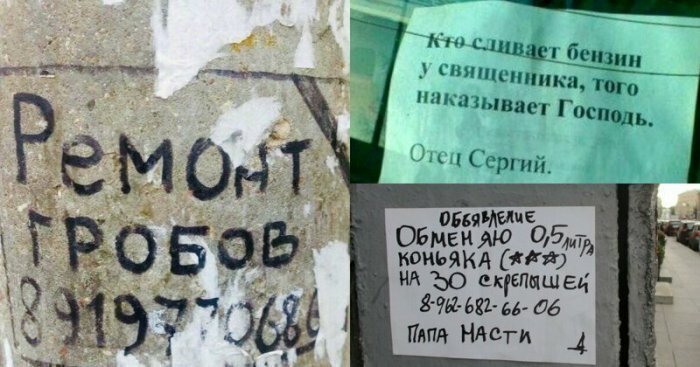 Ремонт
гробов
8919770686
Кто сливает бензин
у священника, того
наказывает Господь.
Отец Сергий.
ОБЪЯВЛЕНИЕ
ОБМЕНЯЮ 0,5 ЛИТРА
КОНЬЯКА (***)
НА 30 СКРЕПЫШЕЙ
8-962-682-66-06
ПАПА НАСТИ